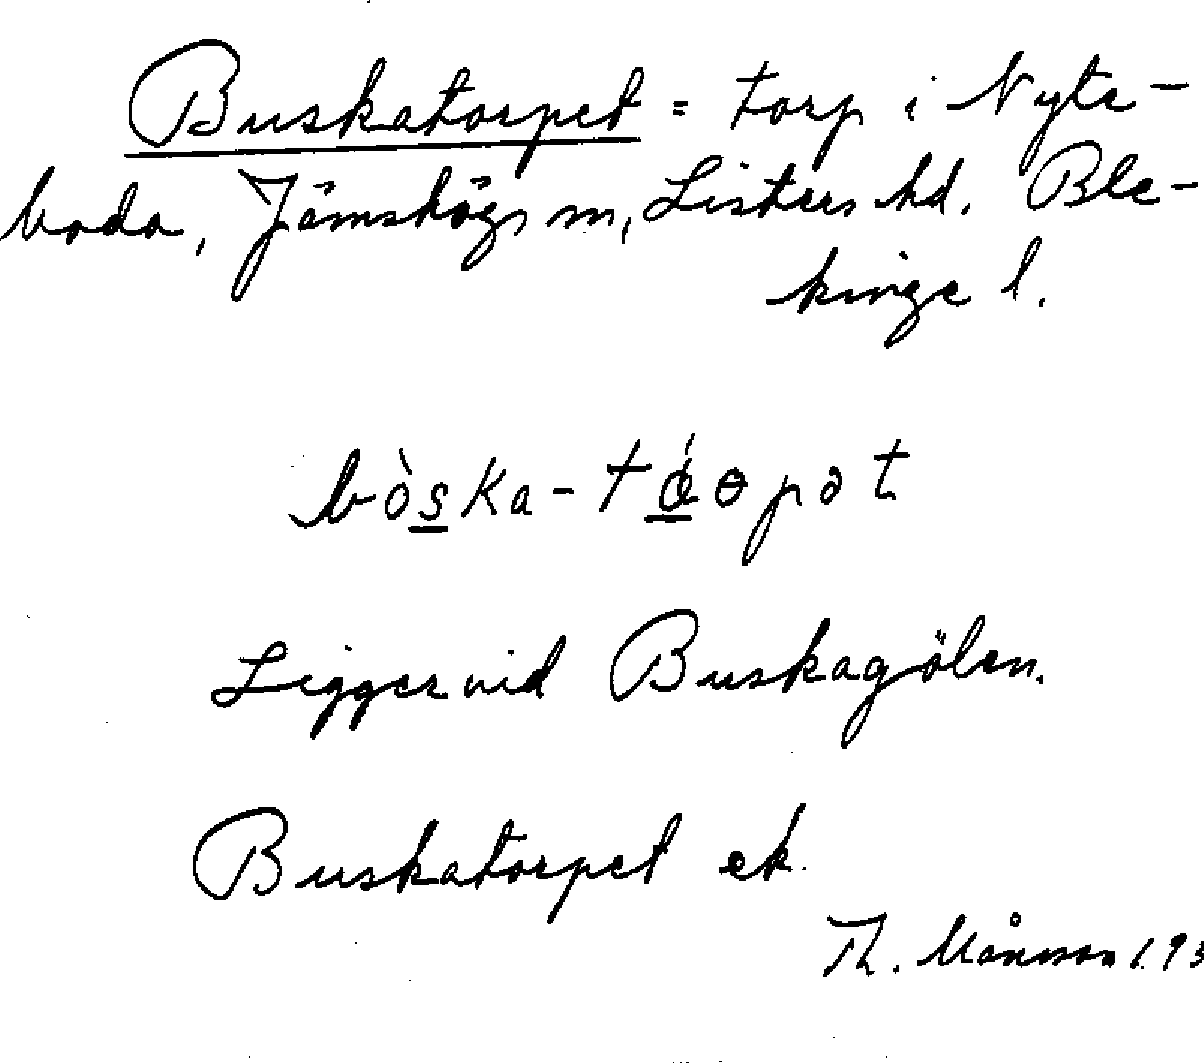 Buskatorpet = torp i Nyte-
boda, Jämshögs sn, Listers hd. Ble-
kinge l.
Ligger vid Buskagölen.
Buskatorpet ek.
Th. Månsson 193